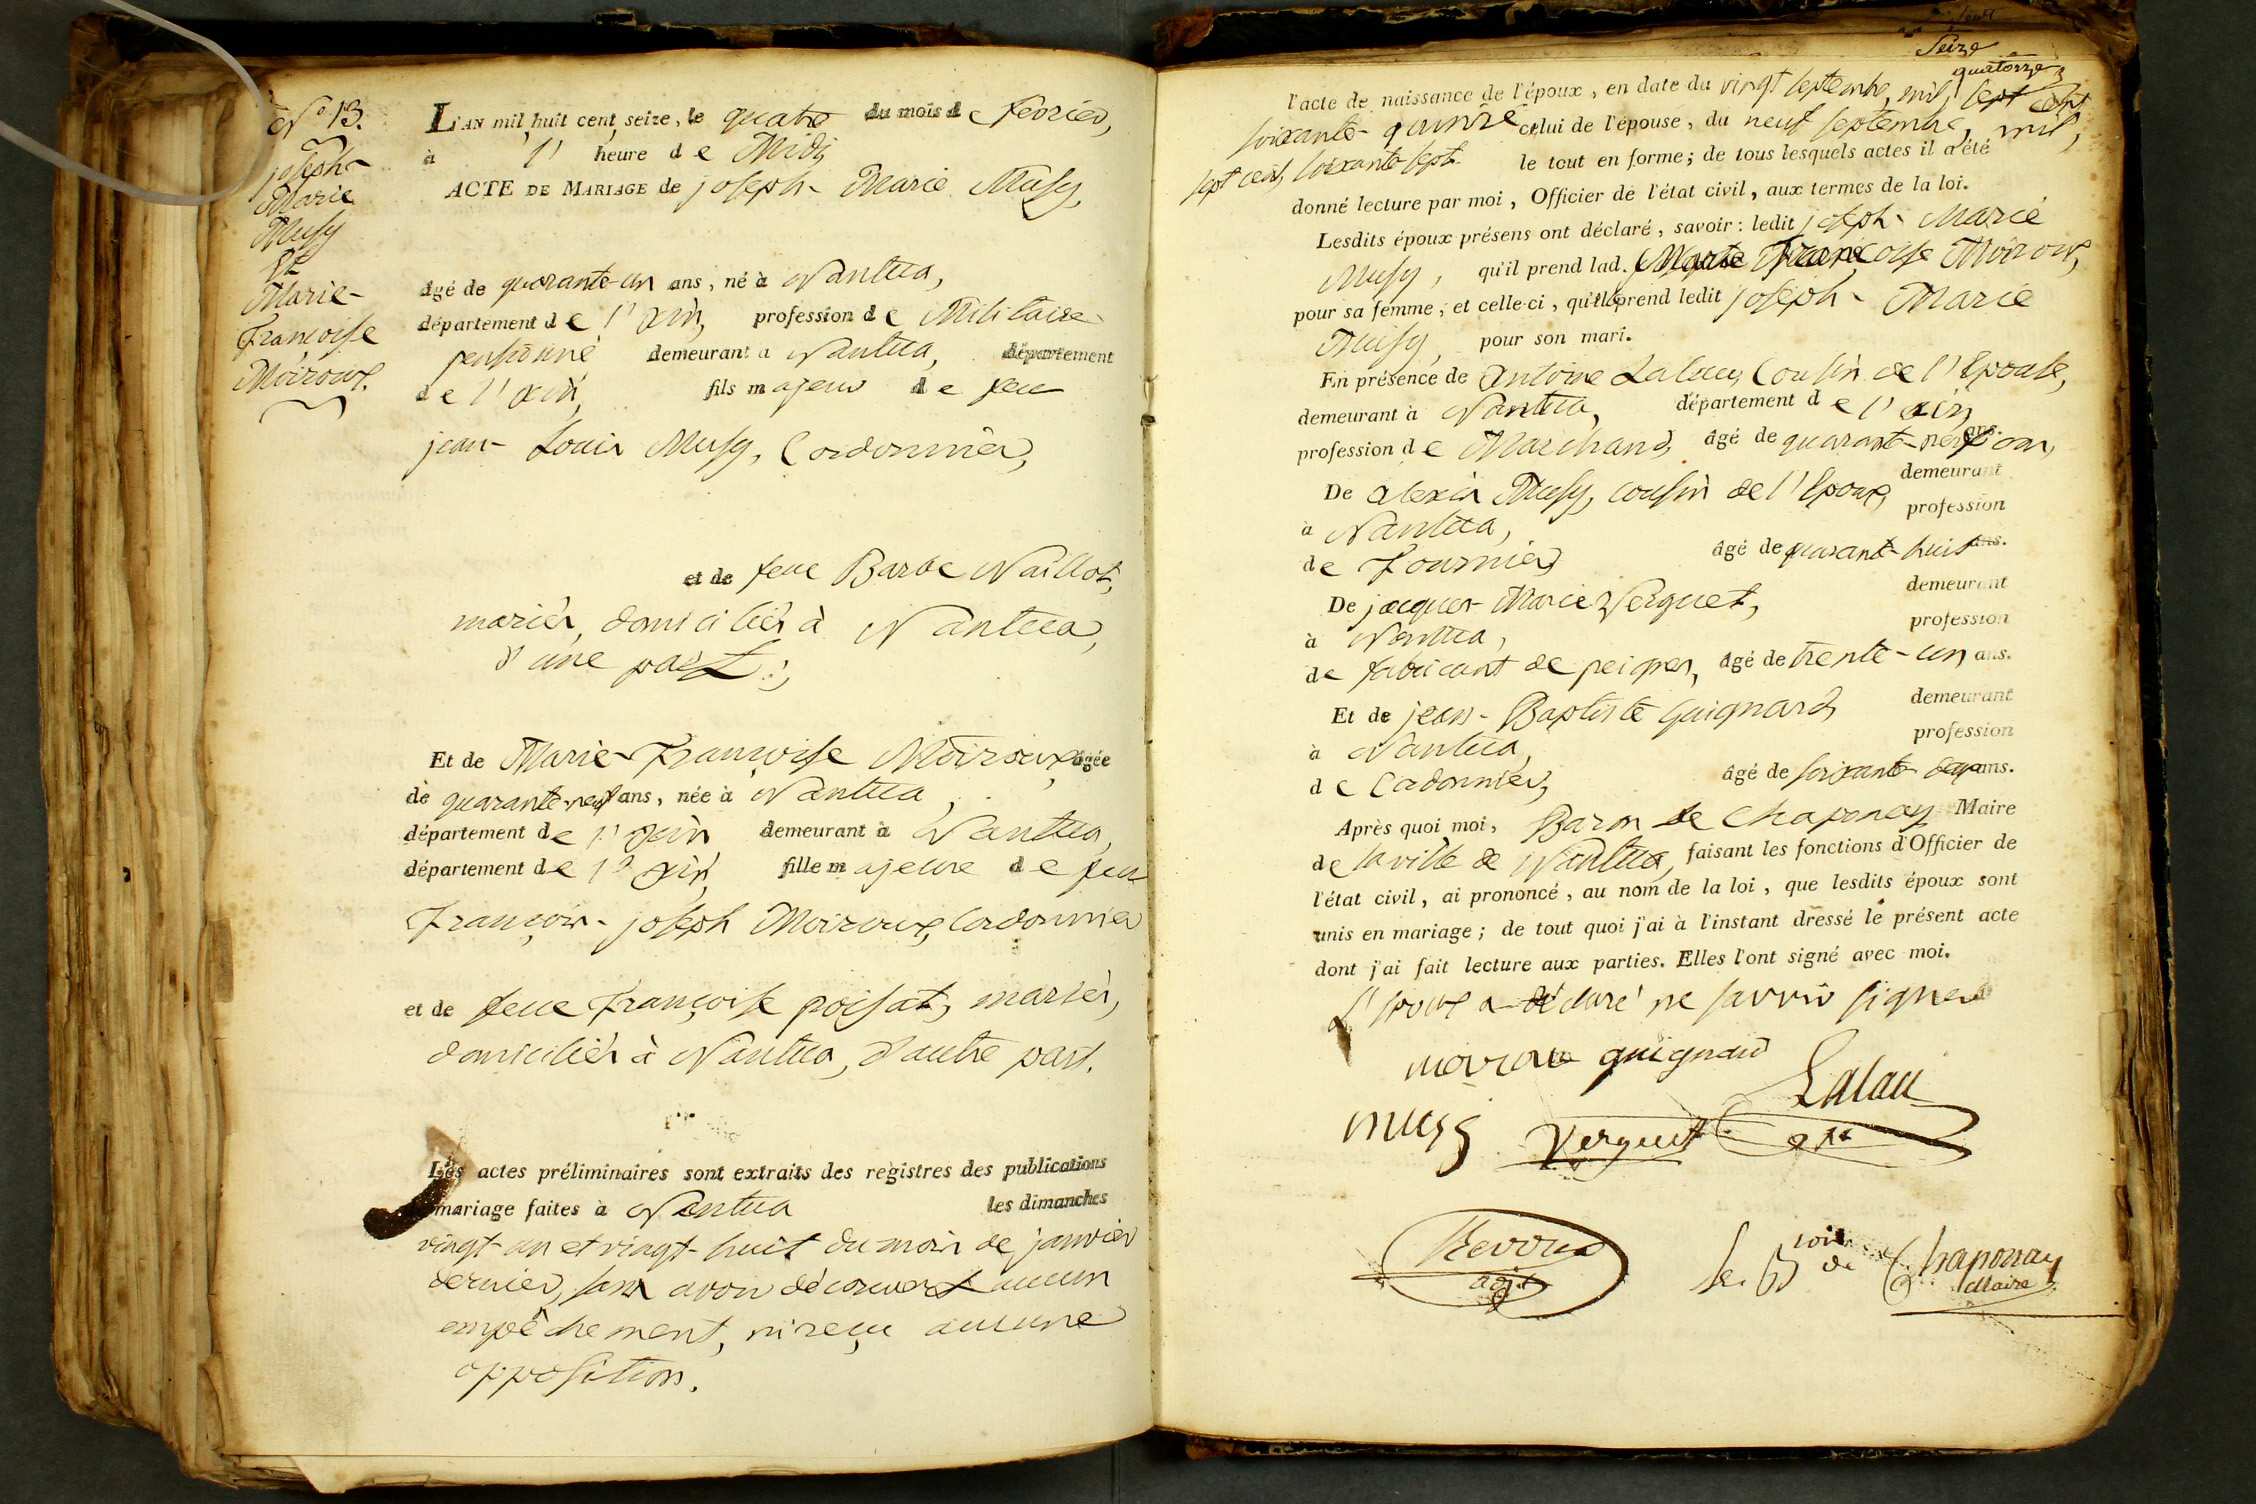 N.° 13.
joseph-
Marie
Musy
Et
Marie-
Françoise
Moiroux.
L'AN mil huit cent seize, le quatre du mois de février,
à l' heure de Midi
ACTE DE MARIAGE de joseph-Marie Musy,
âgé de quarante-un ans, né à Nantua,
département de l'ain, profession de Militaire
pensionné demeurant à Nantua, département
de l'ain, fils majeur de feu
jean-Louis Musy, Cordonnier,
et de feue Barbe Naillot,
mariés, domiciliés à Nantua,
d'une part:,
Et de Marie-Françoise Moiroux, âgée
de quarante-neuf ans, née à Nantua,
département de l'ain demeurant à Nantua,
département de l'ain, fille majeure de feu
François-joseph Moiroux, Cordonnier
et de feue Françoise poisat, mariés,
domiciliés à Nantua, d'autre part.
Les actes préliminaires sont extraits des registres des publications
mariage faites à Nantua les dimanches
vingt-un et vingt-huit du mois de janvier
dernier, sans avoir découvert aucun
empêchement, ni reçu aucune
opposition.
Seize
quatorze
l'acte de naissance de l'époux, en date du vingt septembre, mil, sept cent
soixante-quinze celui de l'épouse, du neuf septembre, mil,
sept cent, soixante sept. le tout en forme; de tous lesquels actes il a été
donné lecture par moi, Officier de l'état civil, aux termes de la loi.
Lesdits époux présens ont déclaré, savoir: ledit joseph-Marie
Musy, qu'il prend lad. Marie Françoise Moiroux,
pour sa femme, et celle-ci, qu'elle prend ledit joseph-Marie
Musy, pour son mari.
En présence de antoine Lalau, Cousin de l'Epouse,
demeurant à Nantua, département de l'ain,
profession de Marchand, âgé de quarante-neuf ans,
De alexis Musy, cousin de l'Epoux, demeurant
à Nantua, profession
de Fournier, âgé de quarante-huit ans.
De jacques-Marie Verguet, demeurant
à Nantua, profession
de fabricant de peignes, âgé de trente-un ans.
Et de jean-Baptiste Guignard, demeurant
à Nantua, profession
de Cordonnier, âgé de soixante ans.
Après quoi moi, Baron de Chaponay Maire
de la ville de Nantua, faisant les fonctions d'Officier de
l'état civil, ai prononcé, au nom de la loi, que lesdits époux sont
unis en mariage; de tout quoi j'ai à l'instant dressé le présent acte
dont j'ai fait lecture aux parties. Elles l'ont signé avec moi.
L'Epoux a déclaré ne savoir signer
moiroux guignard
Lalau
musy Verguet
adjt
Le B de Chaponay
Maire